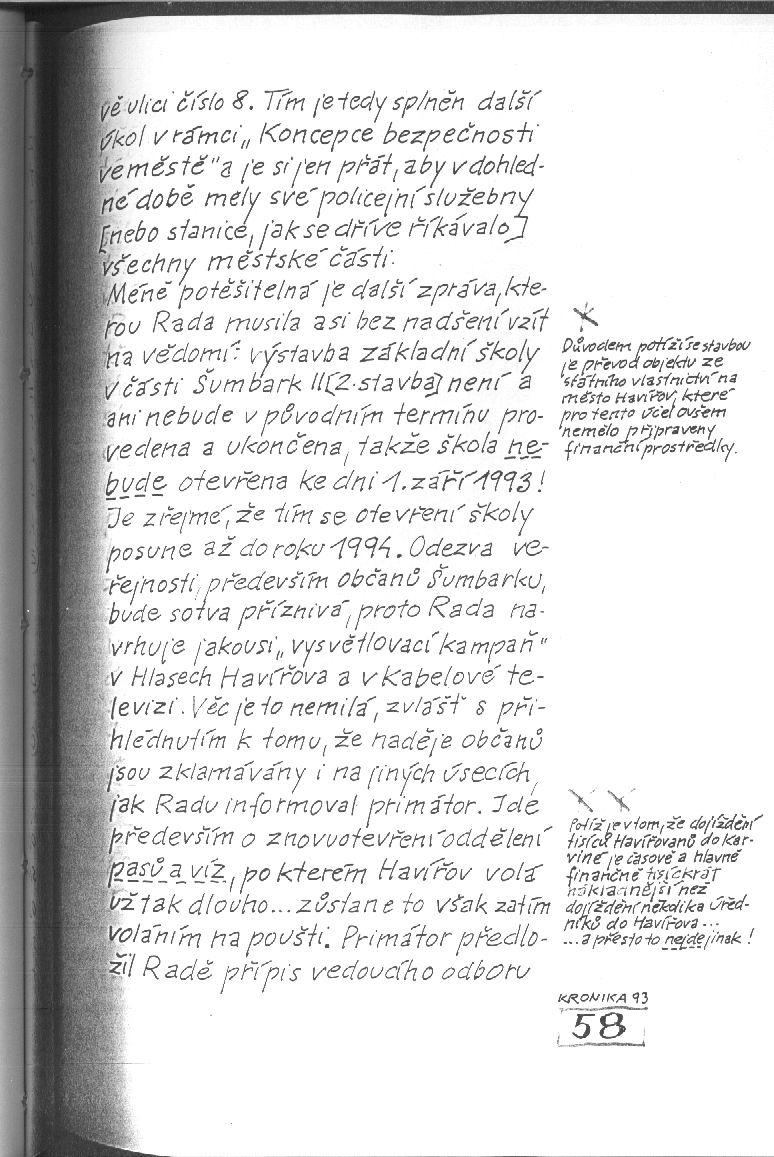 vě ulici číslo 8. Tím je tedy splněn další
úkol v rámci „Koncepce bezpečnosti
ve městě" a je si jen přát, aby v dohled-
né době mely své policejní služebny
[nebo stanice, jak se dříve říkávalo]
všechny městské části.
Méně potěšitelná je další zpráva, kte-
rou Rada musila asi bez nadšení vzít
na vědomí: výstavba základní školy
v části Šumbark II [2. stavba] není a
ani nebude v původním termínu pro-
vedena a ukončena, takže škola ne-
bude otevřena ke dni 1. září 1993!
Je zřejmé, že tím se otevření školy
posune až do roku 1994. Odezva ve-
řejnosti, především občanů Šumbarku,
bude sotva příznivá, proto Rada na-
vrhuje jakousi „vysvětlovací kampaň"
v Hlasech Havířova a v kabelové te-
levizi. Věc je to nemilá, zvlášť s při-
hlédnutím k tomu, že naděje občanů
jsou zklamávány i na jiných úsecích,
jak Radu informoval primátor. Jde
především o znovuotevření oddělení
pasů a víz, po kterém Havířov volá
už tak dlouho... zůstane to však zatím
voláním na poušti. Primátor předlo-
žil Radě přípis vedoucího odboru
Důvodem potíží se stavbou
je převod objektu ze
státního vlastnictví na
město Havířov, které
pro tento účel ovšem
nemělo připraveny
finanční prostředky.
Potíž je v tom, že dojíždění
tisíců Havířovanů do Kar-
viné je časově a hlavně
finančně tisíckrát
nákladnější než
dojíždění několika úřed-
níků do Havířova...
...a přesto to nejde jinak!
KRONIKA 93
58